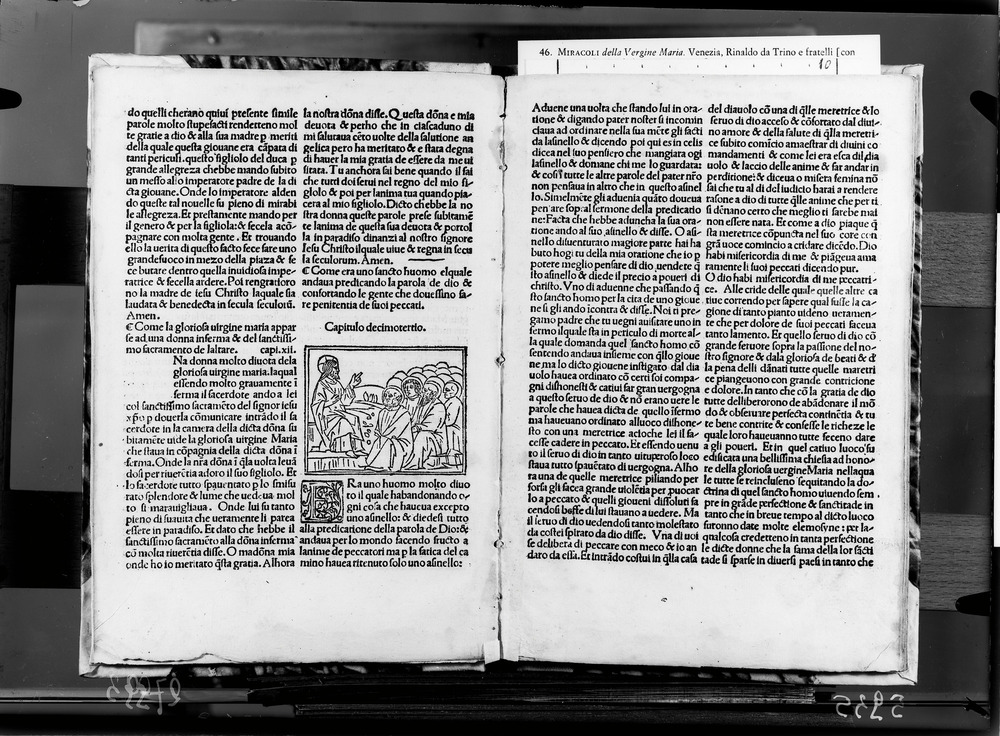 46. MIRACOLI della Vergine Maria. Venezia, Rinaldo da Trino e fratelli [con
10
do quelli cherano quiui presente simile
parole molto stupefacti rendetteno mol
te gratie a dio & alla sua madre p meriti
della quale questa giouane era cāpata di
tanti periculi. questo figliolo del duca p
grande allegreza chebbe mando subito
un messo allo imperatore padre de la di
cta giouane. Onde lo imperatore alden
do queste tal nouelle fu pieno di mirabi
le allegreza. Et prestamente mando per
il genero & per la figliola: & fecela acō
pagnare con molta gente. Et trouando
ello la uerita di questo facto fece fare uno
grande fuoco in mezo della piaza & fe
ce butare dentro quella inuidiosa impe
ratrice & fecella ardere. Poi rengratioro
no la madre de iesu Christo laquale sia
laudata & benedecta in secula seculorū.
Amen.
€ Come la gloriosa uirgine maria appar
se ad una donna inferma & del sanctissi
mo sacramento de laltare. capi.xii.
Na donna molto diuota dela
gloriosa uirgine maria. laqual
essendo molto grauamente i
ferma il sacerdote ando a lei
col sanctissimo sacramēto del signor iesu
xp̄o p douerla cōmunicare intrādo il sa
cerdote in la camera della dicta dōna su
bitamēte uide la gloriosa uirgine Maria
che staua in cōpagnia della dicta dōna i
ferma. Onde la nr̄a dōna i q̄la uolta leuā
dosi per riuerētia adoro il suo figliolo. Et
lo sacerdote tutto spauentato p lo smisu
rato splendore & lume che uedeua mol
to si marauigliaua. Onde lui fu tanto
pieno di suauita che ueramente li parea
essere in paradiso. Et dato che hebbe il
sanctissimo sacramēto alla dōna inferma
cū molta riuerētia disse. O madōna mia
onde ho io meritato q̄sta gratia. Alhora
la nostra dōna disse. Questa dōna e mia
deuota & perho che in ciascaduno di
mi salutaua cēto uolte della salutione an
gelica pero ha meritato & e stata degna
di hauer la mia gratia de essere da me ui
sitata. Tu anchora sai bene quando il sai
che tutti doi serui nel regno del mio fi
gliolo & poi per lanima tua quando pia
cera al mio figliolo. Dicto chebbe la no
stra donna queste parole prese subitamē
te lanima de questa sua deuota & portol
la in paradiso dinanzi al nostro signore
Iesu Christo ilquale uiue & regna in secu
la seculorum. Amen.
€ Come era uno sancto huomo elquale
andaua predicando la parola de dio &
confortando le gente che douessino fa
re penitentia de suoi peccati.
Capitulo decimotertio.
Ra uno huomo molto diuo
to il quale habandonando o
gni cosa che haueua excepto
uno asinello: & diedesi tutto
alla predicatione della parola de Dio: &
andaua per lo mondo facendo fructo a
lanime de peccatori ma p la fatica del ca
mino haueua ritenuto solo uno asinello:
Aduene una uolta che stando lui in ora
tione & digando pater noster si incomin
ciaua ad ordinare nella sua mēte gli facti
da lasinello & dicendo poi qui es in celis
dicea nel suo pensiero che mangiara ogi
lasinello & domane chi me lo guardara:
& cosi tutte le altre parole del pater nr̄o
non pensaua in altro che in questo asinel
lo. Simelmēte gli aduenia quāto doueua
pensare sopra l sermone della predicatio
ne: Facta che hebbe aduncha la sua ora
tione ando al suo asinello & disse. O asi
nello disuenturato magiore parte hai ha
buto hogi tu della mia oratione che io p
potere meglio pensare di dio uendete q̄
sto asinello & diede il precio a poueri di
christo. Uno di aduenne che passando q̄
sto sancto homo per la cita de uno gioue
ne si gli ando icontra & disse. Noi ti pre
gamo padre che tu uegni auisitare uno in
fermo ilquale sta in periculo di morte al
la quale domanda quel sancto homo cō
sentendo andaua insieme con q̄llo gioue
ne. ma lo dicto giouene instigato dal dia
uolo hauea ordinato cō certi soi compa
gni dishonesti & catiui far gran uergogna
a questo seruo de dio & nō erano uere le
parole che hauea dicta de quello ifermo
ma haueuano ordinato alluoco dishone
sto con una meretrice acioche lei il fa
cesse cadere in peccato. Et essendo uenu
to il seruo di dio in tanto uituperoso loco
staua tutto spauētato di uergogna. Alho
ra una de quelle meretrice piliando per
forza gli facea grande uiolētia per puocar
lo a peccato & quelli giouení dissoluti fa
cendosi beffe di lui stauano a uedere. Ma
il seruo di dio uedendosi tanto molestato
da costei spirato da dio disse. Una di uoi
se delibera di peccare con meco & io an
daro da essa. Et intrādo costui in q̄lla casa
del diauolo cō una di q̄lle meretrice & lo
seruo di dio acceso & cōfortato dal diui
no amore & della salute di q̄lla meretri
ce subito comīcio amaestrar di diuini co
mandamenti & come lei era esca dil dia
uolo & laccio delle anime & far andar in
perditione: & diceua o misera femina nō
sai che tu al di del iudicio harai a rendere
rasone a dio di tutte q̄lle anime che per ti
si dēnano certo che meglio ti sarebe mai
non essere nata. Et come a dio piaque q̄
sta meretrice cōpuncta nel suo core con
grā uoce comincio a cridare dicēdo. Dio
habi misericordia di me & piāgeua ama
ramente li suoi peccati dicendo pur.
O dio habi misericordia di me peccatri
ce. Alle cride delle quale quelle altre ca
tiue correndo per sapere qual fusse la ca
gione di tanto pianto uideno ueramen
te che per dolore de suoi peccati faceua
tanto lamento. Et quello seruo di dio cō
grande feruore sopra la passione del no
stro signore & dala gloriosa de beati & d'
la pena delli dānati tutte quelle meretri
ce piangeuono con grande contricione
e dolore. In tanto che cō la gratia de dio
tutte delliberorono de abādonare il mō
do & obseruare perfecta continētia & tu
te bene contrite & confesse le richeze le
quale loro haueuanno tutte feceno dare
a gli poueri. Et in quel catiuo luoco fu
edificata una bellissima chiesa ad hono
re della gloriosa uergine Maria nellaqua
le tutte se reincluseno sequitando la do
ctrina di quel sancto homo uiuendo sem
pre in grāde perfectione & sanctitade in
tanto che in breue tempo al dicto luoco
furonno date molte elemosyne: per la
qualcosa credetteno in tanta perfectione
le dicte donne che la fama della lor sācti
tade si sparse in diuersi paesi in tanto che
5935